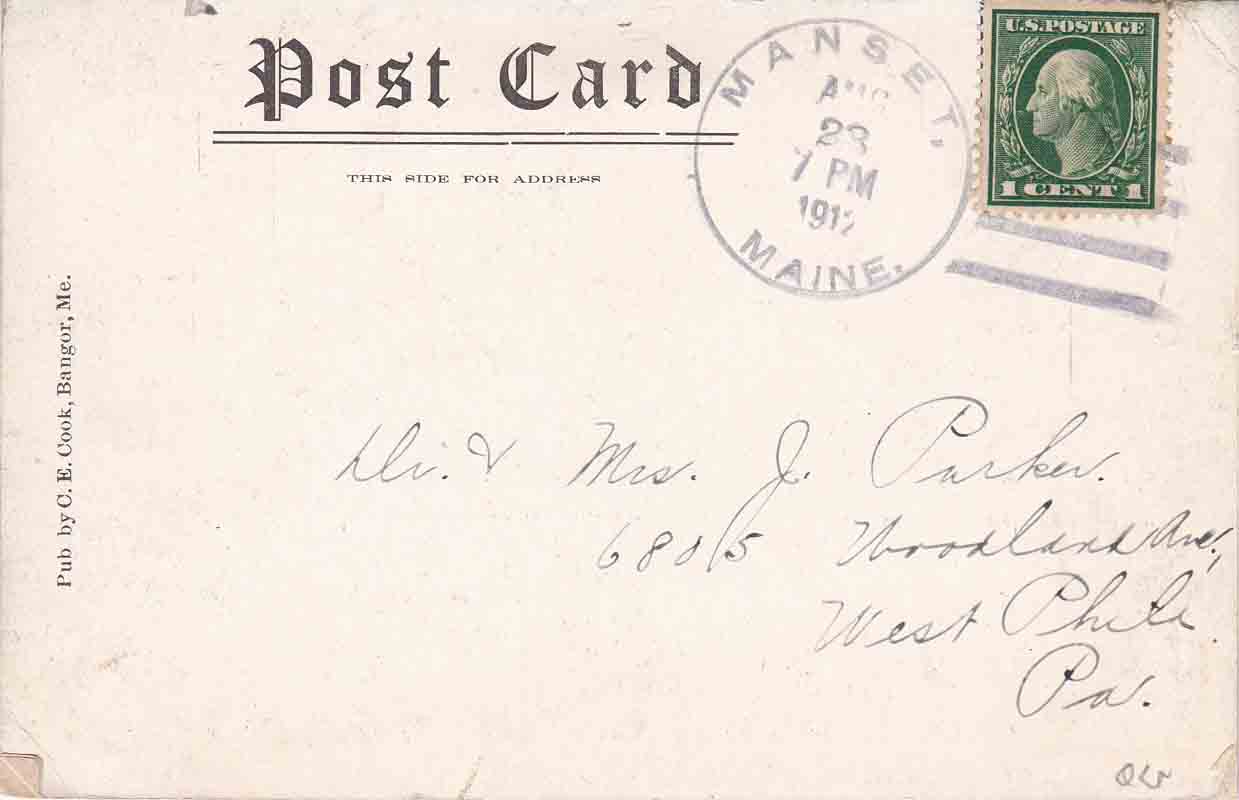 Post Card
THIS SIDE FOR ADDRESS
MANSET,
AUG
28
7 PM
1912
MAINE.
U.S. POSTAGE
1 CENT 1
Pub by C. E. Cook, Bangor, Me.
Dr. & Mrs. J. Parker.
6805 Woodland Ave,
West Phila.
Pa.